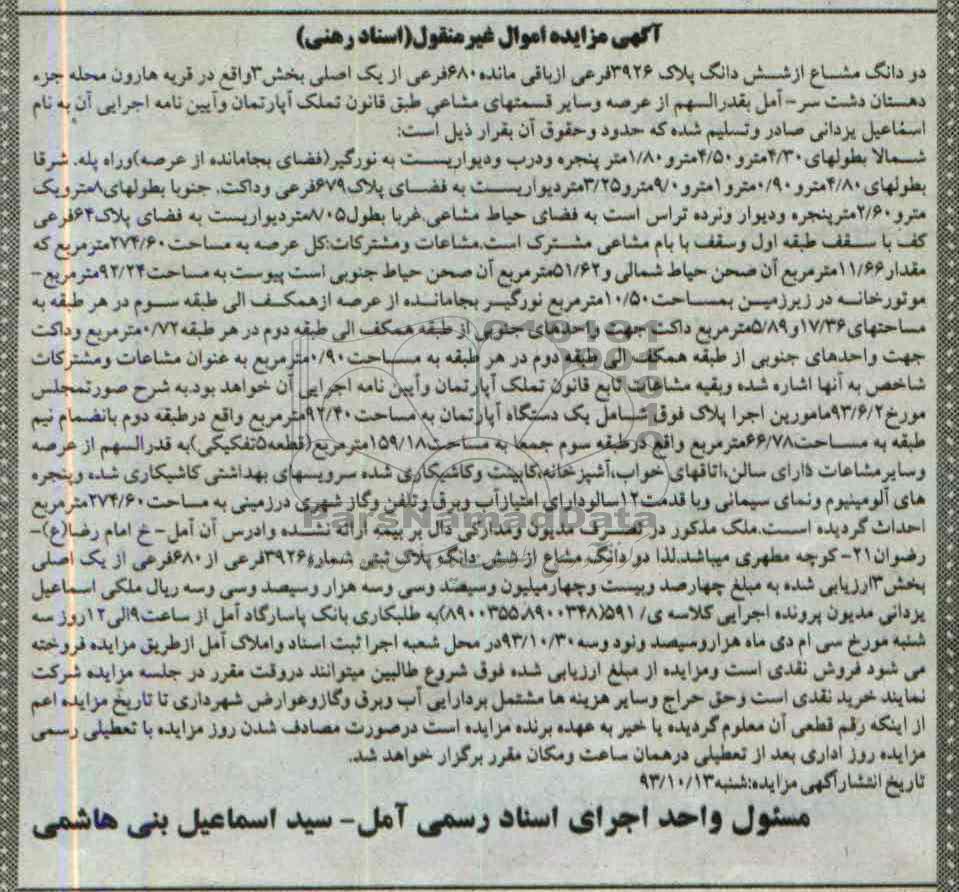 آگهی مزایده اموال غیرمنقول(اسناد رهنی)
دو دانگ مشاع ازشش دانگ پلاک ۳۹۲۶فرعی ازباقی مانده۶۸۰فرعی از یک اصلی بخش۳واقع در قریه هارون محله جزء
دهستان دشت سر-آمل بقدرالسهم از عرصه وسایر قسمتهای مشاعی طبق قانون تملک آپارتمان وآیین نامه اجرایی آن به نام
اسماعیل یزدانی صادر وتسلیم شده که حدود وحقوق آن بقرار ذیل است:
شمالا بطولهای۴/۳۰مترو۴/۵۰مترو۱/۸۰متر پنجره ودرب ودیواریست به نورگیر(فضای بجامانده از عرصه)وراه پله. شرقا
بطولهای۴/۸۰مترو۰/۹۰مترو۱مترو۹/۰مترو۳/۲۵متردیواریست به فضای پلاک۶۷۹فرعی وداکت. جنوبا بطولهای۸مترویک
مترو۲/۶۰مترپنجره ودیوار ونرده تراس است به فضای حیاط مشاعی.غربا بطول۸/۰۵متردیواریست به فضای پلاک۶۴فرعی
کف با سقف طبقه اول وسقف با بام مشاعی مشترک است.مشاعات ومشترکات:کل عرصه به مساحت۲۷۴/۶۰مترمربع که
مقدار۱۱/۶۶مترمربع آن صحن حیاط شمالی و۵۱/۶۲مترمربع آن صحن حیاط جنوبی است پیوست به مساحت۹۲/۲۴مترمربع-
موتورخانه در زیرزمین بمساحت۱۰/۵۰مترمربع نورگیر بجامانده از عرصه ازهمکف الی طبقه سوم در هر طبقه به
مساحتهای۱۷/۳۶و۵/۸۹مترمربع داکت جهت واحدهای جنوبی از طبقه همکف الی طبقه دوم در هر طبقه۰/۷۲مترمربع وداکت
جهت واحدهای جنوبی از طبقه همکف الی طبقه دوم در هر طبقه به مساحت۰/۹۰مترمربع به عنوان مشاعات ومشترکات
شاخص به آنها اشاره شده وبقیه مشاعات تابع قانون تملک آپارتمان وآیین نامه اجرایی آن خواهد بود.به شرح صورتمجلس
مورخ۹۳/۶/۲مامورین اجرا پلاک فوق شامل یک دستگاه آپارتمان به مساحت۹۲/۴۰مترمربع واقع درطبقه دوم بانضمام نیم
طبقه به مساحت۶۶/۷۸مترمربع واقع درطبقه سوم جمعا به مساحت۱۵۹/۱۸مترمربع(قطعه۵تفکیکی)به قدرالسهم از عرصه
وسایرمشاعات دارای سالن،اتاقهای خواب،آشپزخانه،کابینت وکاشیکاری شده سرویسهای بهداشتی کاشیکاری شده وپنجره
های آلومینیوم ونمای سیمانی وبا قدمت۱۲سالودارای امتیازآب وبرق وتلفن وگاز شهری درزمینی به مساحت۲۷۴/۶۰مترمربع
احداث گردیده است.ملک مذکور در تصرف مدیون ومدارکی دال بر بیمه ارائه نشده وادرس آن آمل- خ امام رضا(ع)-
رضوان۲۱-کوچه مطهری میباشد.لذا دو دانگ مشاع از شش دانگ پلاک ثبتی شماره۳۹۲۶فرعی از۶۸۰فرعی از یک اصلی
بخش۳ارزیابی شده به مبلغ چهارصد وبیست وچهارمیلیون وسیصد وسی وسه هزار وسیصد وسی وسه ریال ملکی اسماعیل
یزدانی مدیون پرونده اجرایی کلاسه ی/ ۵۹۱(۸۹۰۰۳۴۸و۸۹۰۰۳۵۵)به طلبکاری بانک پاسارگاد آمل از ساعت۹الی۱۲روز سه
شنبه مورخ سی ام دی ماه هزاروسیصد ونود وسه۹۳/۱۰/۳۰در محل شعبه اجرا ثبت اسناد واملاک آمل ازطریق مزایده فروخته
می شود فروش نقدی است ومزایده از مبلغ ارزیابی شده فوق شروع طالبین میتوانند دروقت مقرر در جلسه مزایده شرکت
نمایند خرید نقدی است وحق حراج وسایر هزینه ها مشتمل بردارایی آب وبرق وگازوعوارض شهرداری تا تاریخ مزایده اعم
از اینکه رقم قطعی آن معلوم گردیده یا خیر به عهده برنده مزایده است درصورت مصادف شدن روز مزایده با تعطیلی رسمی
مزایده روز اداری بعد از تعطیلی درهمان ساعت ومکان مقرر برگزار خواهد شد.
تاریخ انتشارآگهی مزایده:شنبه۹۳/۱۰/۱۳
مسئول واحد اجرای اسناد رسمی آمل- سید اسماعیل بنی هاشمی
ParsNamadData